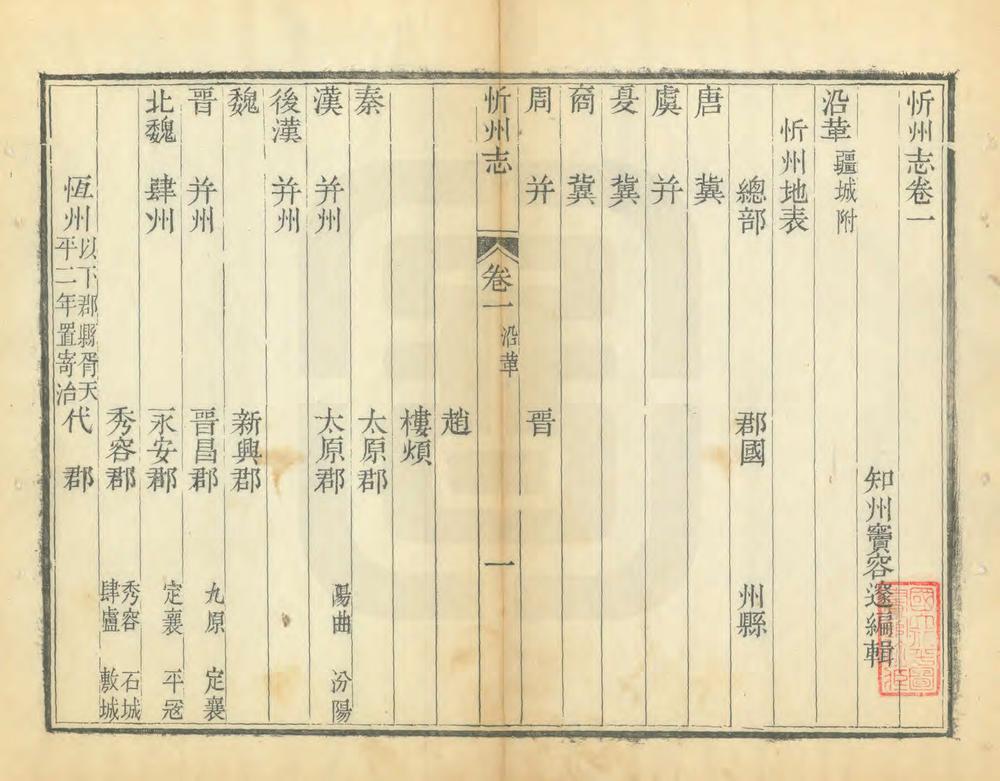 忻州志卷一
知州竇容邃編輯
沿革 疆域附
忻州地表
總部 郡國 州縣
唐 冀
虞 并
夏 冀
商 冀
周 并 晉
忻州志 卷一 沿革 一
趙
樓煩
秦 太原郡
漢 并州 太原郡 陽曲 汾陽
後漢 并州
魏 新興郡
晉 并州 晉昌郡 九原 定襄
北魏 肆州 永安郡 定襄 平寇
秀容郡 秀容 石城 肆盧 敷城
恆州 以下郡縣胥天平二年置寄治 代郡